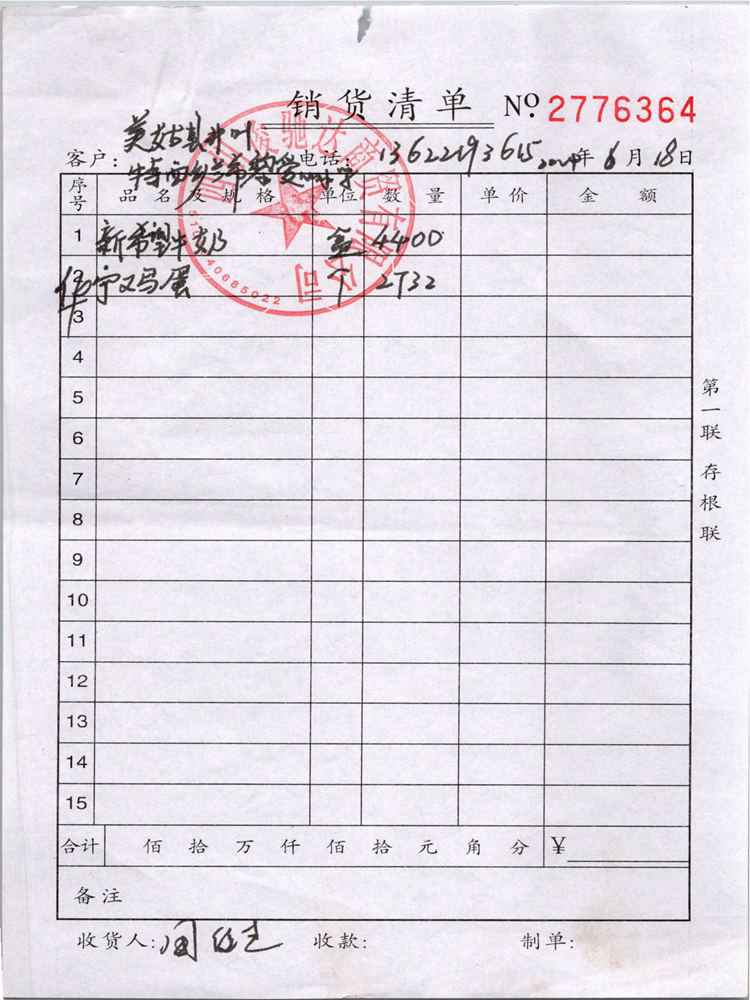 销货清单 No. 2776364
美姑县
客户: 特西乡 电话: 13622193615 年6月18日
序号 品名及规格 单位 数量 单价 金额
1 新希望牛奶 盒 4400
2 鸡蛋 个 2732
3
4
5
6
7
8
9
10
11
12
13
14
15
合计 佰 拾 万 仟 佰 拾 元 角 分 ¥
备注
收货人: 收款: 制单:
第一联 存根联
驰达商贸有限公司